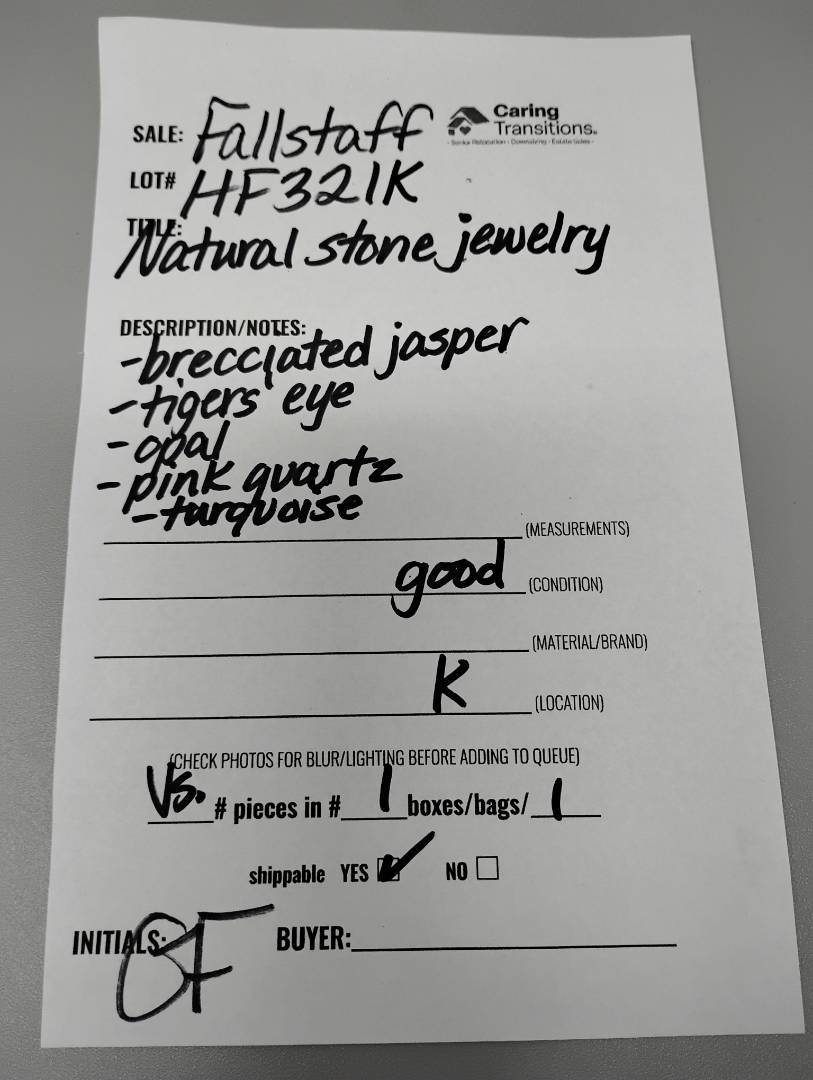 SALE: Fallstaff
Caring
Transitions.
- Senior Relocation • Downsizing • Estate Sales -
LOT# HF321K
TITLE:
Natural stone jewelry
DESCRIPTION/NOTES:
-brecciated jasper
-tigers' eye
-opal
-pink quartz
-turquoise
(MEASUREMENTS)
good (CONDITION)
(MATERIAL/BRAND)
K (LOCATION)
(CHECK PHOTOS FOR BLUR/LIGHTING BEFORE ADDING TO QUEUE)
Vs. # pieces in # 1 boxes/bags/ 1
shippable YES NO
INITIALS: BUYER: